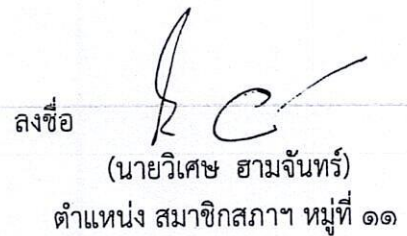 ลงชื่อ
(นายวิเศษ ฮามจันทร์)
ตำแหน่ง สมาชิกสภาฯ หมู่ที่ ๑๑